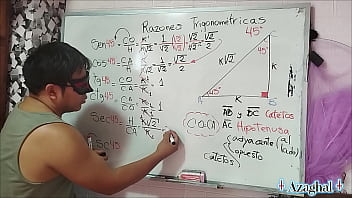 Razones Trigonometricas
Sen45°= CO/H = K/K√2 = 1/√2 (√2/√2) = √2/√2·√2 = √2/2
Cos45°= CA/H = K/K√2 = 1/√2 · √2/√2 = √2/2
Tg45°= CO/CA = K/K = 1
Ctg45°= CA/CO = K/K = 1
Sec45°= H/CA = K√2/K
45°
K√2
K
45°
A
K
B
AB y BC Catetos
AC Hipotenusa
(CO-CA)
adyacente (al lado)
opuesto
catetos
‡ Azaghal ‡